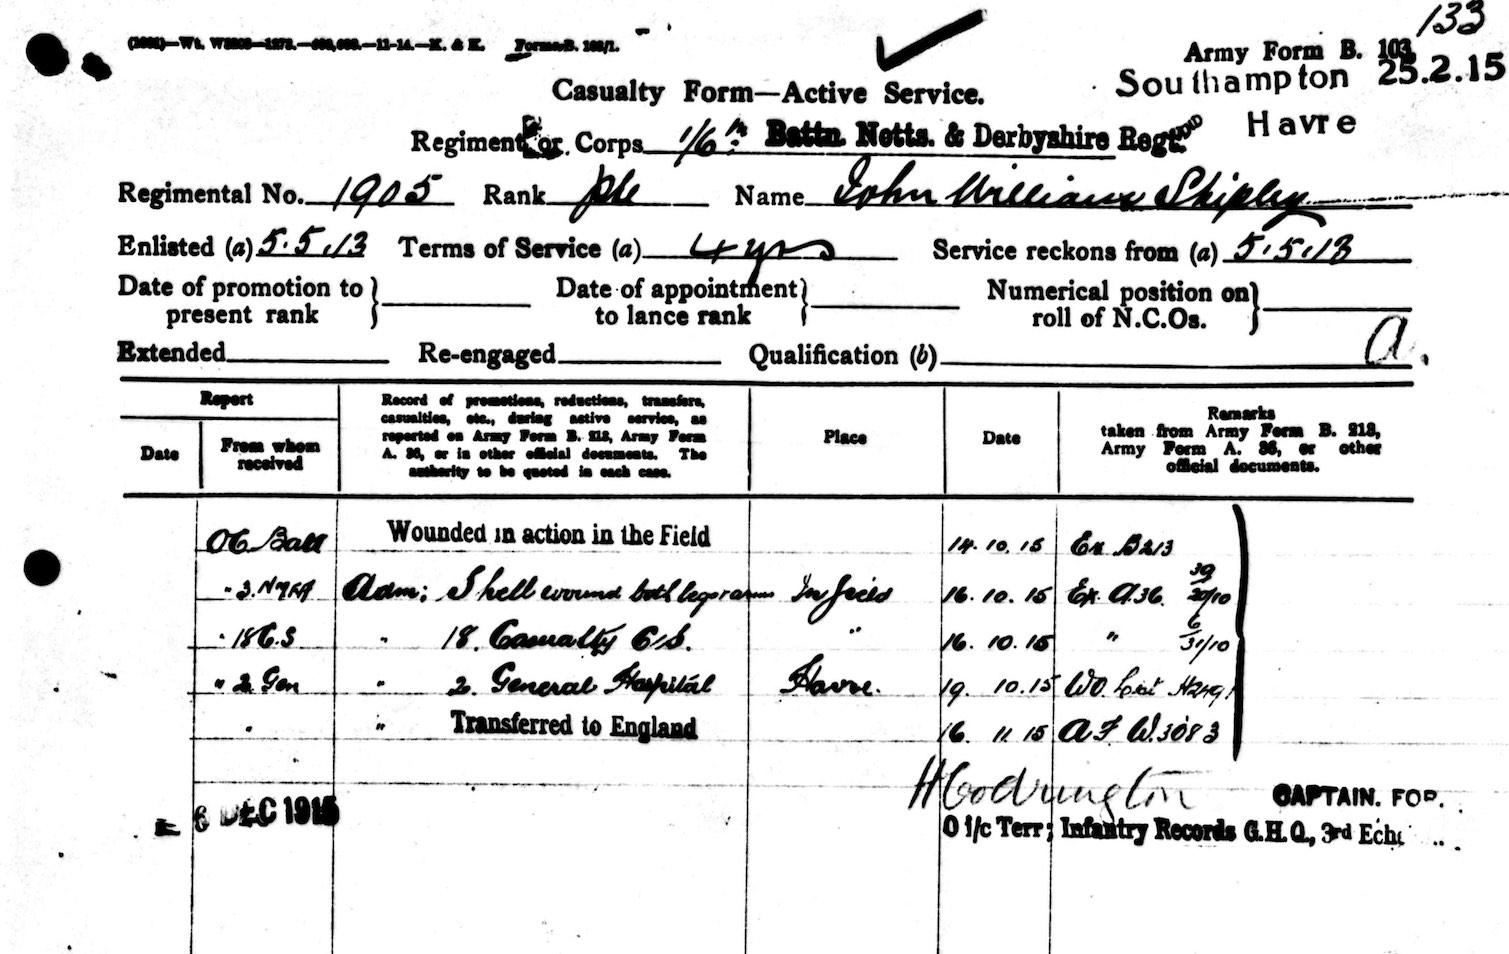 133
(2001)—Wt. W3203—1273.—600,000.—11-14.—K. & K. Forms B. 103/1.
Army Form B. 103.
Southampton 25.2.15
Casualty Form—Active Service.
Havre
Regiment or Corps 1/6th Battn. Notts. & Derbyshire Regt.
Regimental No. 1905 Rank Pte Name John William Shipley
Enlisted (a) 5.5.13 Terms of Service (a) 4 yrs Service reckons from (a) 5.5.13
Date of promotion to present rank } Date of appointment to lance rank } Numerical position on roll of N.C.Os. }
Extended Re-engaged Qualification (b) A.
Report
Date
From whom received
Record of promotions, reductions, transfers, casualties, etc., during active service, as reported on Army Form B. 213, Army Form A. 36, or in other official documents. The authority to be quoted in each case.
Place
Date
Remarks taken from Army Form B. 213, Army Form A. 36, or other official documents.
OC Batt Wounded in action in the Field 14.10.15 Ex B213
" 3. Adm; Shell wound both legs & arms In field 16.10.15 Ex A.36. 39 20/10
" 18 C.S " 18. Casualty C.S. " 16.10.15 " 6 31/10
" 2. Gen " 2. General Hospital Havre. 19.10.15 WO. List
" " Transferred to England 16.11.15 A F W.3083
H Codrington CAPTAIN. FOR.
6 DEC 1915
O i/c Terr; Infantry Records G.H.Q., 3rd Eche